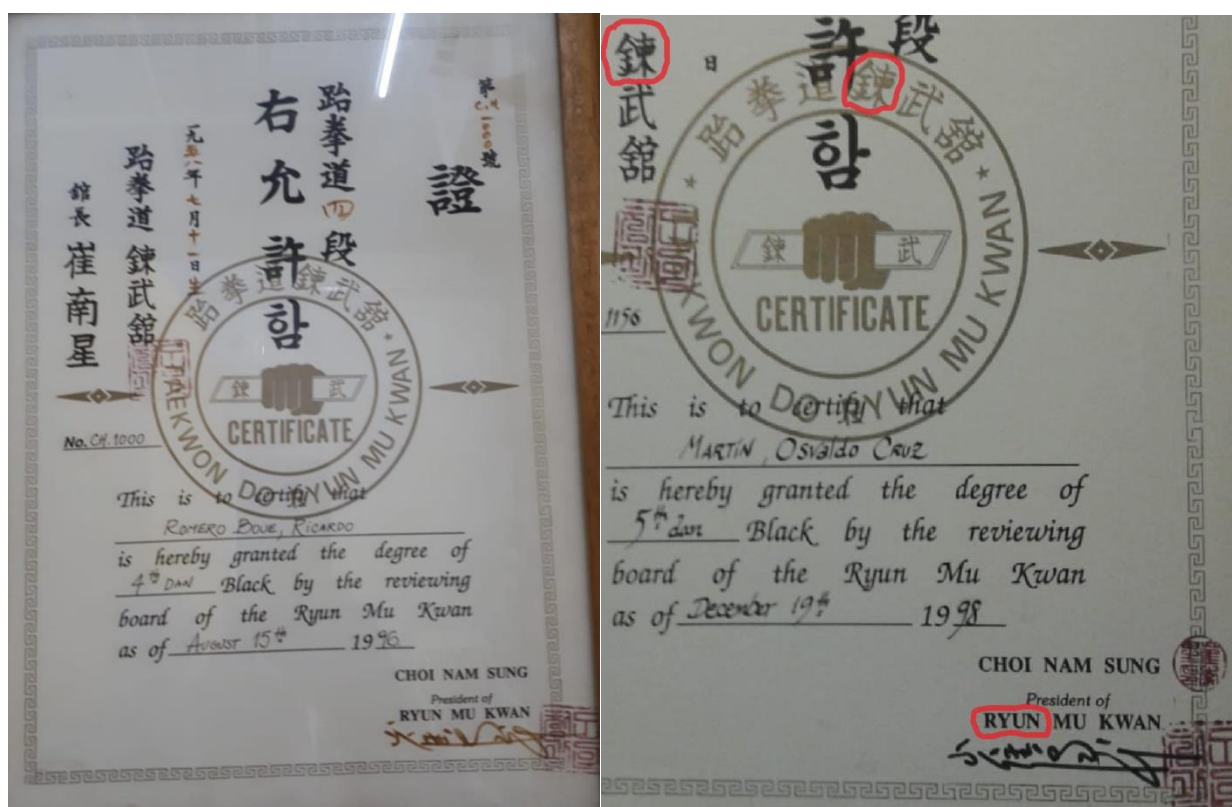 第CH1000號
證
跆拳道 四段
右允許함
一九五八年七月十一日生
跆拳道 鍊武舘
舘長 崔南星
跆拳道鍊武舘
* TAEKWON DO RYUN MU KWAN *
鍊 武
CERTIFICATE
No. CH.1000
This is to certify that
ROMERO BOUE, RICARDO
is hereby granted the degree of
4th DAN Black by the reviewing
board of the Ryun Mu Kwan
as of August 15th 1996
CHOI NAM SUNG
President of
RYUN MU KWAN
段
許함
日
鍊武舘
跆拳道鍊武舘
* TAEKWON DO RYUN MU KWAN *
鍊 武
CERTIFICATE
1156
This is to certify that
MARTIN, Osvaldo CRUZ
is hereby granted the degree of
5th dan Black by the reviewing
board of the Ryun Mu Kwan
as of December 19th 1998
CHOI NAM SUNG
President of
RYUN MU KWAN